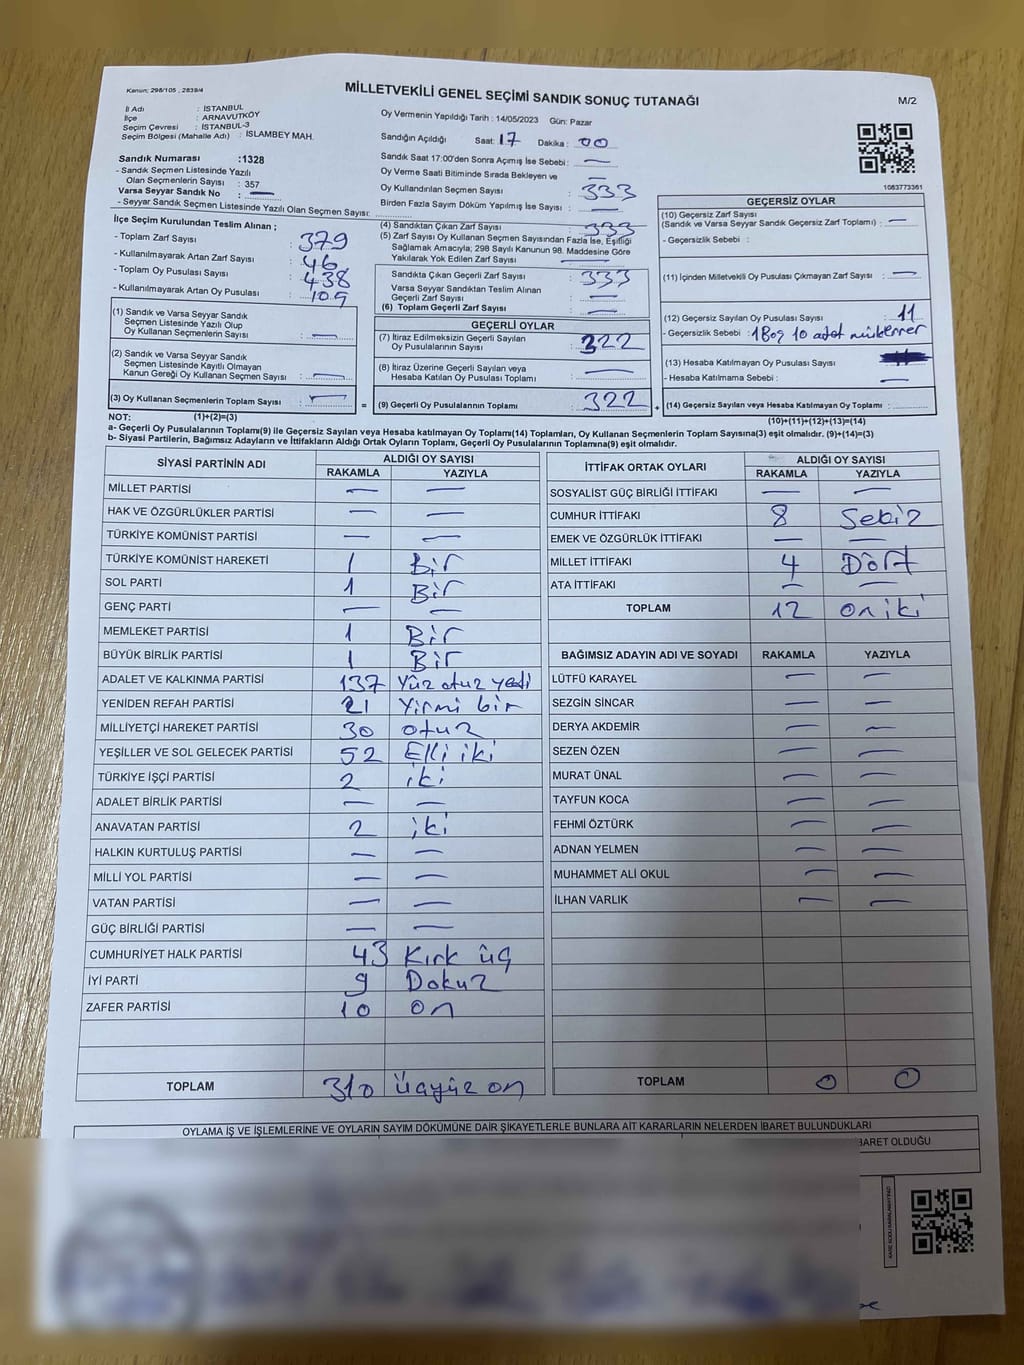 Kanun; 298/105 , 2839/4
MİLLETVEKİLİ GENEL SEÇİMİ SANDIK SONUÇ TUTANAĞI
M/2
İl Adı : İSTANBUL
İlçe : ARNAVUTKÖY
Seçim Çevresi : İSTANBUL-3
Seçim Bölgesi (Mahalle Adı) : İSLAMBEY MAH.
Sandık Numarası :1328
- Sandık Seçmen Listesinde Yazılı
Olan Seçmenlerin Sayısı : 357
Varsa Seyyar Sandık No : —
- Seyyar Sandık Seçmen Listesinde Yazılı Olan Seçmen Sayısı:
Oy Vermenin Yapıldığı Tarih : 14/05/2023 Gün: Pazar
Sandığın Açıldığı Saat: 17 Dakika : 00
Sandık Saat 17:00'den Sonra Açmış İse Sebebi : —
Oy Verme Saati Bitiminde Sırada Bekleyen ve
Oy Kullandırılan Seçmen Sayısı : 333
Birden Fazla Sayım Döküm Yapılmış İse Sayısı : —
1083773361
İlçe Seçim Kurulundan Teslim Alınan ;
- Toplam Zarf Sayısı : 379
- Kullanılmayarak Artan Zarf Sayısı : 46
- Toplam Oy Pusulası Sayısı : 438
- Kullanılmayarak Artan Oy Pusulası : 105
(1) Sandık ve Varsa Seyyar Sandık
Seçmen Listesinde Yazılı Olup
Oy Kullanan Seçmenlerin Sayısı : —
(2) Sandık ve Varsa Seyyar Sandık
Seçmen Listesinde Kayıtlı Olmayan
Kanun Gereği Oy Kullanan Seçmen Sayısı : —
(3) Oy Kullanan Seçmenlerin Toplam Sayısı : —
(4) Sandıktan Çıkan Zarf Sayısı : 333
(5) Zarf Sayısı Oy Kullanan Seçmen Sayısından Fazla İse, Eşitliği
Sağlamak Amacıyla; 298 Sayılı Kanunun 98. Maddesine Göre
Yakılarak Yok Edilen Zarf Sayısı : —
Sandıkta Çıkan Geçerli Zarf Sayısı : 333
Varsa Seyyar Sandıktan Teslim Alınan
Geçerli Zarf Sayısı : —
(6) Toplam Geçerli Zarf Sayısı : —
GEÇERLİ OYLAR
(7) İtiraz Edilmeksizin Geçerli Sayılan
Oy Pusulalarının Sayısı : 322
(8) İtiraz Üzerine Geçerli Sayılan veya
Hesaba Katılan Oy Pusulası Toplamı : —
= (9) Geçerli Oy Pusulalarının Toplamı : 322 +
GEÇERSİZ OYLAR
(10) Geçersiz Zarf Sayısı
(Sandık ve Varsa Seyyar Sandık Geçersiz Zarf Toplamı) : —
- Geçersizlik Sebebi :
(11) İçinden Milletvekili Oy Pusulası Çıkmayan Zarf Sayısı : —
(12) Geçersiz Sayılan Oy Pusulası Sayısı : 11
- Geçersizlik Sebebi : 1 Boş 10 adet mükerrer
(13) Hesaba Katılmayan Oy Pusulası Sayısı
- Hesaba Katılmama Sebebi : —
(14) Geçersiz Sayılan veya Hesaba Katılmayan Oy Toplamı :
NOT: (1)+(2)=(3)
(10)+(11)+(12)+(13)=(14)
a- Geçerli Oy Pusulalarının Toplamı(9) ile Geçersiz Sayılan veya Hesaba Katılmayan Oy Toplamı(14) Toplamları, Oy Kullanan Seçmenlerin Toplam Sayısına(3) eşit olmalıdır. (9)+(14)=(3)
b- Siyasi Partilerin, Bağımsız Adayların ve İttifakların Aldığı Ortak Oyların Toplamı, Geçerli Oy Pusulalarının Toplamına(9) eşit olmalıdır.
SİYASİ PARTİNİN ADI ALDIĞI OY SAYISI
RAKAMLA YAZIYLA
MİLLET PARTİSİ — —
HAK VE ÖZGÜRLÜKLER PARTİSİ — —
TÜRKİYE KOMÜNİST PARTİSİ — —
TÜRKİYE KOMÜNİST HAREKETİ 1 Bir
SOL PARTİ 1 Bir
GENÇ PARTİ — —
MEMLEKET PARTİSİ 1 Bir
BÜYÜK BİRLİK PARTİSİ 1 Bir
ADALET VE KALKINMA PARTİSİ 137 Yüz otuz yedi
YENİDEN REFAH PARTİSİ 21 Yirmi bir
MİLLİYETÇİ HAREKET PARTİSİ 30 otuz
YEŞİLLER VE SOL GELECEK PARTİSİ 52 Elli iki
TÜRKİYE İŞÇİ PARTİSİ 2 iki
ADALET BİRLİK PARTİSİ — —
ANAVATAN PARTİSİ 2 iki
HALKIN KURTULUŞ PARTİSİ — —
MİLLİ YOL PARTİSİ — —
VATAN PARTİSİ — —
GÜÇ BİRLİĞİ PARTİSİ — —
CUMHURİYET HALK PARTİSİ 43 Kırk üç
İYİ PARTİ 9 Dokuz
ZAFER PARTİSİ 10 on
TOPLAM 310 üçyüz on
İTTİFAK ORTAK OYLARI ALDIĞI OY SAYISI
RAKAMLA YAZIYLA
SOSYALİST GÜÇ BİRLİĞİ İTTİFAKI — —
CUMHUR İTTİFAKI 8 Sekiz
EMEK VE ÖZGÜRLÜK İTTİFAKI — —
MİLLET İTTİFAKI 4 Dört
ATA İTTİFAKI — —
TOPLAM 12 on iki
BAĞIMSIZ ADAYIN ADI VE SOYADI RAKAMLA YAZIYLA
LÜTFÜ KARAYEL — —
SEZGİN SİNCAR — —
DERYA AKDEMİR — —
SEZEN ÖZEN — —
MURAT ÜNAL — —
TAYFUN KOCA — —
FEHMİ ÖZTÜRK — —
ADNAN YELMEN — —
MUHAMMET ALİ OKUL — —
İLHAN VARLIK — —
TOPLAM 0 0
OYLAMA İŞ VE İŞLEMLERİNE VE OYLARIN SAYIM DÖKÜMÜNE DAİR ŞİKAYETLERLE BUNLARA AİT KARARLARIN NELERDEN İBARET BULUNDUKLARI
BARET OLDUĞU